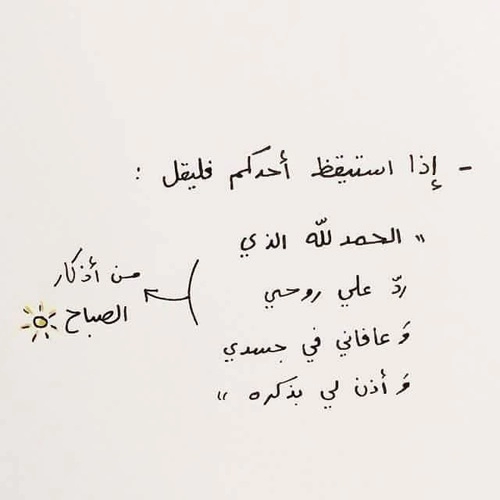 - إذا استيقظ أحدكم فليقل :
" الحمد لله الذي
ردّ علي روحي
وَ عافاني في جسدي
وَ أذن لي بذكره "
من أذكار
الصباح